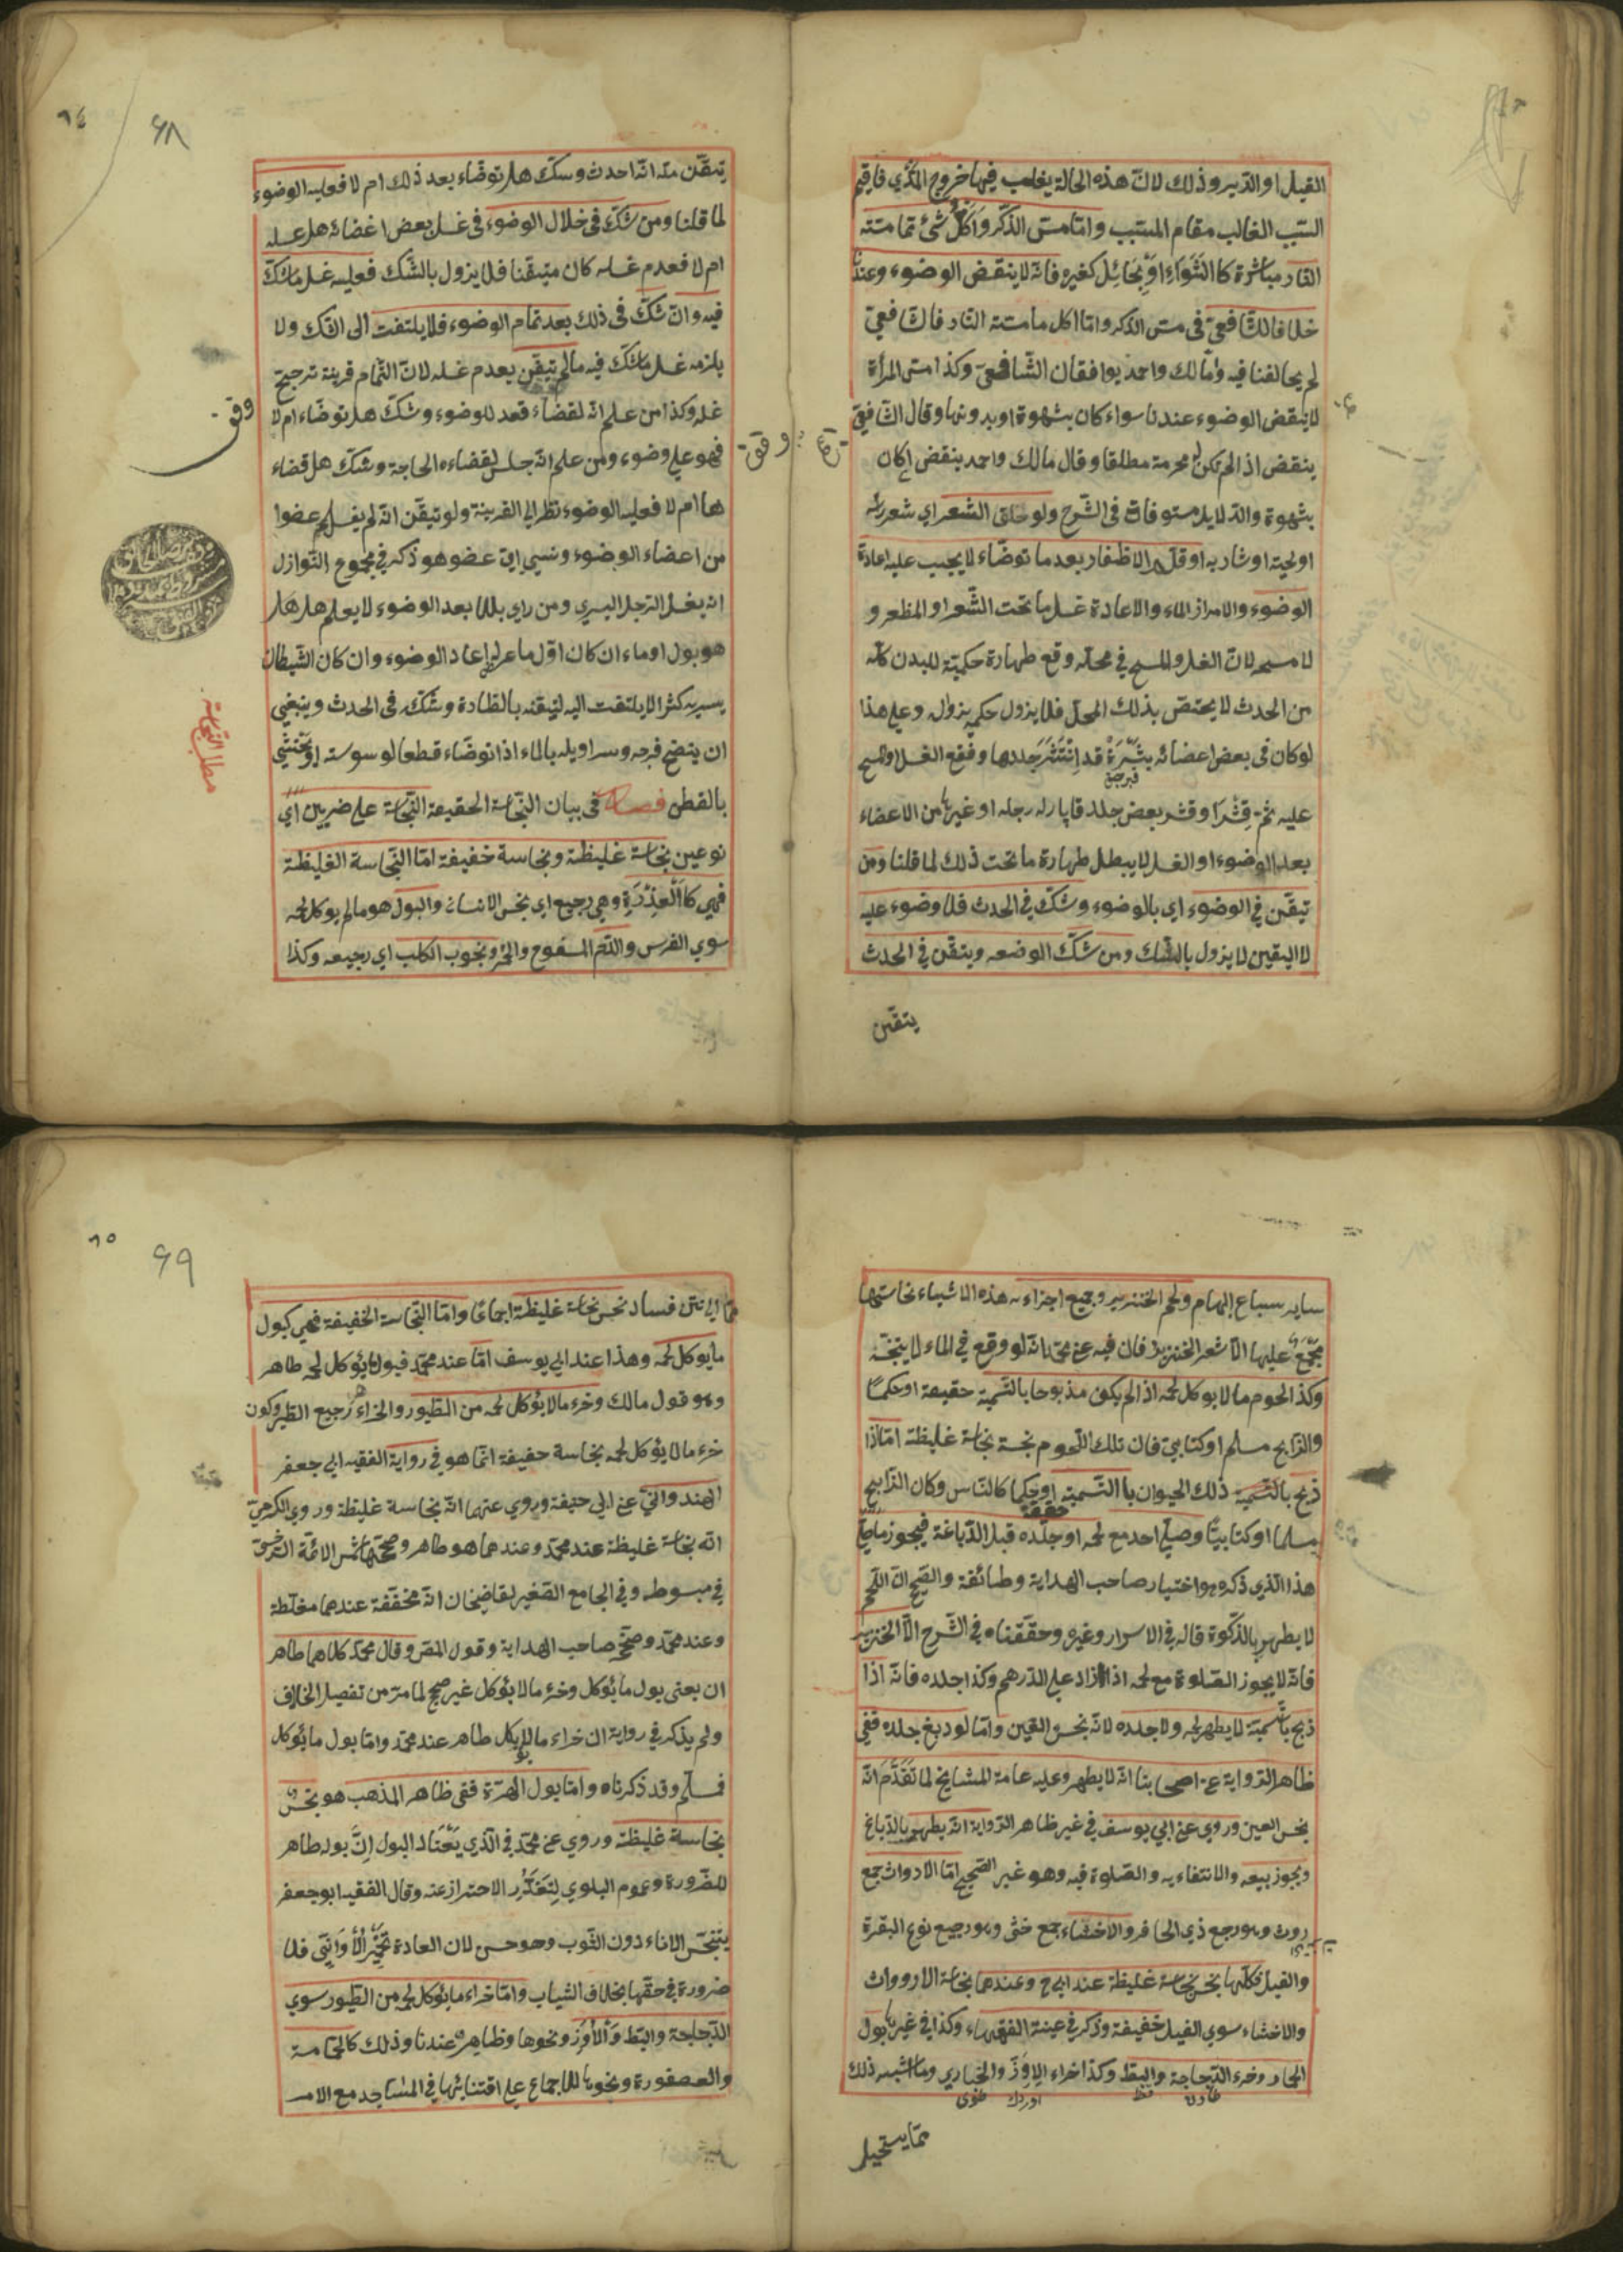 القبل او الدبر وذلك لانّ هذه الحالة يغلب فيها خروج المذي فاقيم
السّبب الغالب مقام المسبّب وامّا مسّ الذّكر واكل شئ ممّا مسّته
النّار مباشرة كا الشّواء او بحائل كغيره فانّه لا ينقض الوضوء وعند
خلافا للشّافعيّ في مسّ الذّكر وامّا اكل ما مسّته النّار فالشّافعيّ
لم يخالفنا فيه ومالك واحمد يوافقان الشّافعيّ وكذا مسّ المرأة
لا ينقض الوضوء عندنا سواء كان بشهوة او بدونها وقال الشّافعيّ
ينقض اذا لم تكن محرمة مطلقا وقال مالك واحمد ينقض ان كان
بشهوة والدّلايل مستوفات في الشّرح ولو حلق الشّعر اي شعر رأسه
او لحيته او شاربه او قلّم الاظفار بعد ما توضّاء لا يجب عليه اعادة
الوضوء والامرار الماء والاعادة غسل ما تحت الشّعر او الظفر و
لا مسحه لانّ الغسل والمسح في محلّه وقع طهارة حكميّة للبدن كلّه
من الحدث لا يختصّ بذلك المحلّ فلا يزول حكمه بزواله وعلي هذا
لو كان في بعض اعضائه بثرة قد انتثر جلدها وقع الغسل والمسح
عليه ثمّ قشر او قشر بعض جلد رجله او غيرها من الاعضاء
بعد الوضوء او الغسل لا يبطل طهارة ما تحت ذلك لما قلنا ومن
تيقّن في الوضوء اي بالوضوء وشكّ في الحدث فلا وضوء عليه
لا اليقين لا يزول بالشّك ومن شكّ الوضوء ويتقّن في الحدث
يتقّن
٦٤
٦٨
تيقّن منه انّه احدث وشكّ هل توضّاء بعد ذلك ام لا فعليه الوضوء
لما قلنا ومن شكّ في خلال الوضوء في غسل بعض اعضائه هل غسله
ام لا فعدم غسله كان متيقّنا فلا يزول بالشّك فعليه غسل ما شكّ
فيه وان شكّ في ذلك بعد تمام الوضوء فلا يلتفت الى الشّك ولا
يلزمه غسل ما شكّ فيه ما لم يتيقّن بعدم غسله لانّ التّمام قرينة ترجيح
غسله وكذا من علم انّه لقضاء قعد للوضوء وشكّ هل توضّاء ام لا
فهو علي وضوء ومن علم انّه جلس لقضاءه الحاجة وشكّ هل قضاء
ها ام لا فعليه الوضوء نظرا الي القرينة ولو تيقّن انّه لم يغسل عضوا
من اعضاء الوضوء ونسي ايّ عضو هو ذكر في مجموع النّوازل
انه يغسل الرّجل اليسري ومن راي بللا بعد الوضوء لا يعلم هل هل
هو بول او ماء ان كان اوّل ما عرض له اعاد الوضوء وان كان الشّيطان
يسيريه كثر الا يلتفت اليه لتيقنه بالطّهارة وشكّ في الحدث وينبغي
ان ينضح فرجه وسراويله بالماء اذا توضّاء قطعا لوسوسته او يحتشي
بالقطن فصل في بيان النّجاسة الحقيقة النّجاسة علي ضربين اي
نوعين نجاسة غليظة ونجاسة خفيفة امّا النّجاسة الغليظة
فهي كا العذرة وهي رجيع اي نجس الانسان والبول هو ما لم يوكل لحمه
سوي الفرس والدّم المسفوح والخمر ونجوب الكلب اي رجيعه وكذا
وقف
مطلب النّجاسة
ساير سباع البهايم ولحم الخنزير وجميع اجزاءه هذه الاشياء نجاستها
مجمع عليها الّا شعر الخنزير فان فيه عن محمّد انّه لو وقع في الماء لا ينجّسه
وكذا لحوم ما لا يوكل لحمه اذا لم يكن مذبوحا بالتّسمية حقيقة او حكما
والذّابح مسلم او كتابيّ فان تلك اللّحوم نجسة نجاسة غليظة امّا اذا
ذبح بالتّسمية ذلك الحيوان با التّسمية او حكما كالنّاس وكان الذّابح
حقيقة
مسلما او كتابيّا وصلّي احد مع لحمه او جلده قبل الدّباغة فيجوز صلاته
هذا الّذي ذكره هو اختيار صاحب الهداية وطائفة والصّحيح انّ اللّحم
لا يطهر بالذّكوة قاله في الاسرار وغيره وحقّقناه في الشّرح الّا الخنزير
فانّه لا يجوز الصّلوة مع لحمه اذا زاد علي الدّرهم وكذا جلده فانّه اذا
ذبح بالتّسمية لا يطهر لحمه ولا جلده لانّه نجس العين وامّا لو دبغ جلده ففي
ظاهر الرّواية عن اصحابنا انّه لا يطهر وعليه عامة المشايخ لما تقدّم انّه
نجس العين وروي عن ابي يوسف في غير ظاهر الرّواية انّه يطهر بالدّباغ
ويجوز بيعه والانتفاء به والصّلوة فيه وهو غير الصّحيح امّا الارواث جمع
روث وهو رجع ذي الحافر والاخثاء جمع خثي وهو رجيع نوع البقرة
والفيل فكلّها نجس نجاسة غليظة عند ابي ح وعندهما نجاسة الارواث
والاخثاء سوي الفيل خفيفة وذكر في عينة الفقهاء وكذا في غيرها بول
الحمار وخرء الدّجاجة والبطّ وكذا خراء الاوزّ والحباري وما اشبه ذلك
ممّا يستحيل
٦٥
٦٩
ممّا الي نتن فساد نجس نجاسة غليظة اجماعا وامّا النّجاسة الخفيفة فهي كبول
ما يوكل لحمه وهذا عند ابي يوسف امّا عند محمّد فبول ما يؤكل لحمه طاهر
وهو قول مالك وخرء ما لا يؤكل لحمه من الطّيور والخراء رجيع الطّير وكون
خرء ما لا يؤكل لحمه نجاسة خفيفة انّما هو في رواية الفقيه ابي جعفر
الهندوانيّ عن ابي حنيفة وروي عنهما انّه نجاسة غليظة وروي الكرخيّ
انّه نجاسة غليظة عند محمّد وعندهما هو طاهر وصحّحها شمس الائمّة السّرخسيّ
في مبسوطه وفي الجامع الصّغير لقاضيخان انّه مخفّفة عندهما مغلّظة
وعند محمّد وصحّحه صاحب الهداية وقول المصّ وقال محمّد كلاهما طاهر
ان يعني بول ما يؤكل وخرء ما لا يؤكل غير صحيح لما مرّ من تفصيل الخلاف
ولم يذكر في رواية ان خراء ما لا يوكل طاهر عند محمّد وامّا بول ما يؤكل
فمسلّم وقد ذكرناه وامّا بول الهرّة ففي ظاهر المذهب هو نجس
نجاسة غليظة وروي عن محمّد في الّذي يعتاد البول انّ بوله طاهر
للضّرورة وعموم البلوي لتعذّر الاحتراز عنه وقال الفقيه ابو جعفر
يتنجّس الاناء دون الثّوب وهو حسن لان العادة تخمير الاواني فلا
ضرورة في حقّها بخلاف الثياب وامّا خراء ما يؤكل لحمه من الطّيور سوي
الدّجاجة والبطّ والأوز ونحوها وظاهر عندنا وذلك كالحمامة
والعصفورة ونحوها للاجماع علي اقتنائها في المساجد مع الامر